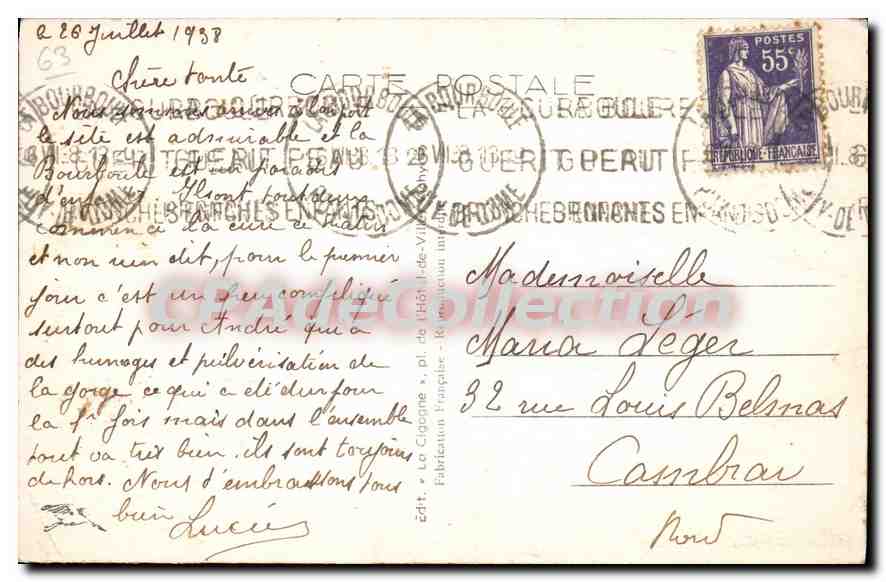 2 26 Juillet 1938
63
Chère tante
CARTE POSTALE
Nous sommes à bon port
le site est admirable et la
Bourboule est un paradis
d'enfants. Ils ont tous deux
commencé la cure ce matin
et non rien dit, pour le premier
jour c'est un peu compliqué
surtout pour André qui a
des humages et pulvérisation de
la gorge ce qui a été dur pour
la 1r fois mais dans l'ensemble
tout va très bien. ils sont toujours
dehors. Nous t'embrassons tous
bien
Lucie
POSTES
55c
REPUBLIQUE FRANÇAISE
LA BOURBOULE
GUERIT PEAU
BRONCHES ENFANTS
LA BOURBOULE
PUY-DE-DOME
Édit. « La Cigogne », pl. de l'Hôtel-de-Ville, Vichy
Fabrication Française - Reproduction interdite
CPAdeCollection
Mademoiselle
Maria Léger
32 rue Louis Belmas
Cambrai
Nord